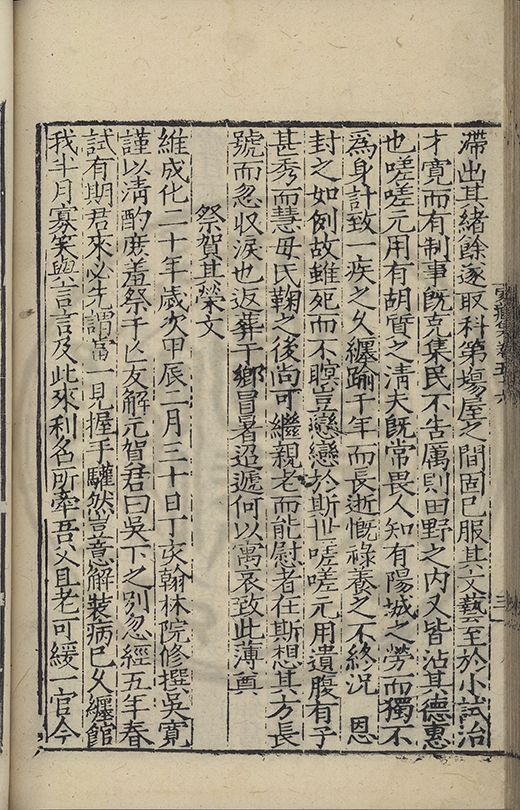 滯出其緒餘遂取科第塲屋之間固已服其文藝至於小試治
才寬而有制事旣克集民不告厲則田野之内又皆沾其德惠
也嗟嗟元用有胡質之清夫旣常畏人知有陽城之勞而獨不
爲身計致一疾之久纏踰千年而長逝慨祿養之不終況 恩
封之如例故雖死而不瞑豈戀戀於斯世嗟嗟元用遺腹有子
甚秀而慧母氏鞠之後尚可繼親老而能慰者在斯想其方長
號而忽収淚也返葬于鄉冒暑迢遞何以寓哀致此薄奠
祭賀其榮文
維成化二十年歲次甲辰二月三十日丁亥翰林院修撰吳寬
謹以清酌庶羞祭于亡友解元賀君曰吳下之别忽經五年春
試有期君來必先謂當一見握手驩然豈意解裝病已久纏館
我半月寡笑與言言及此來利名所牽吾父且老可緩一官今